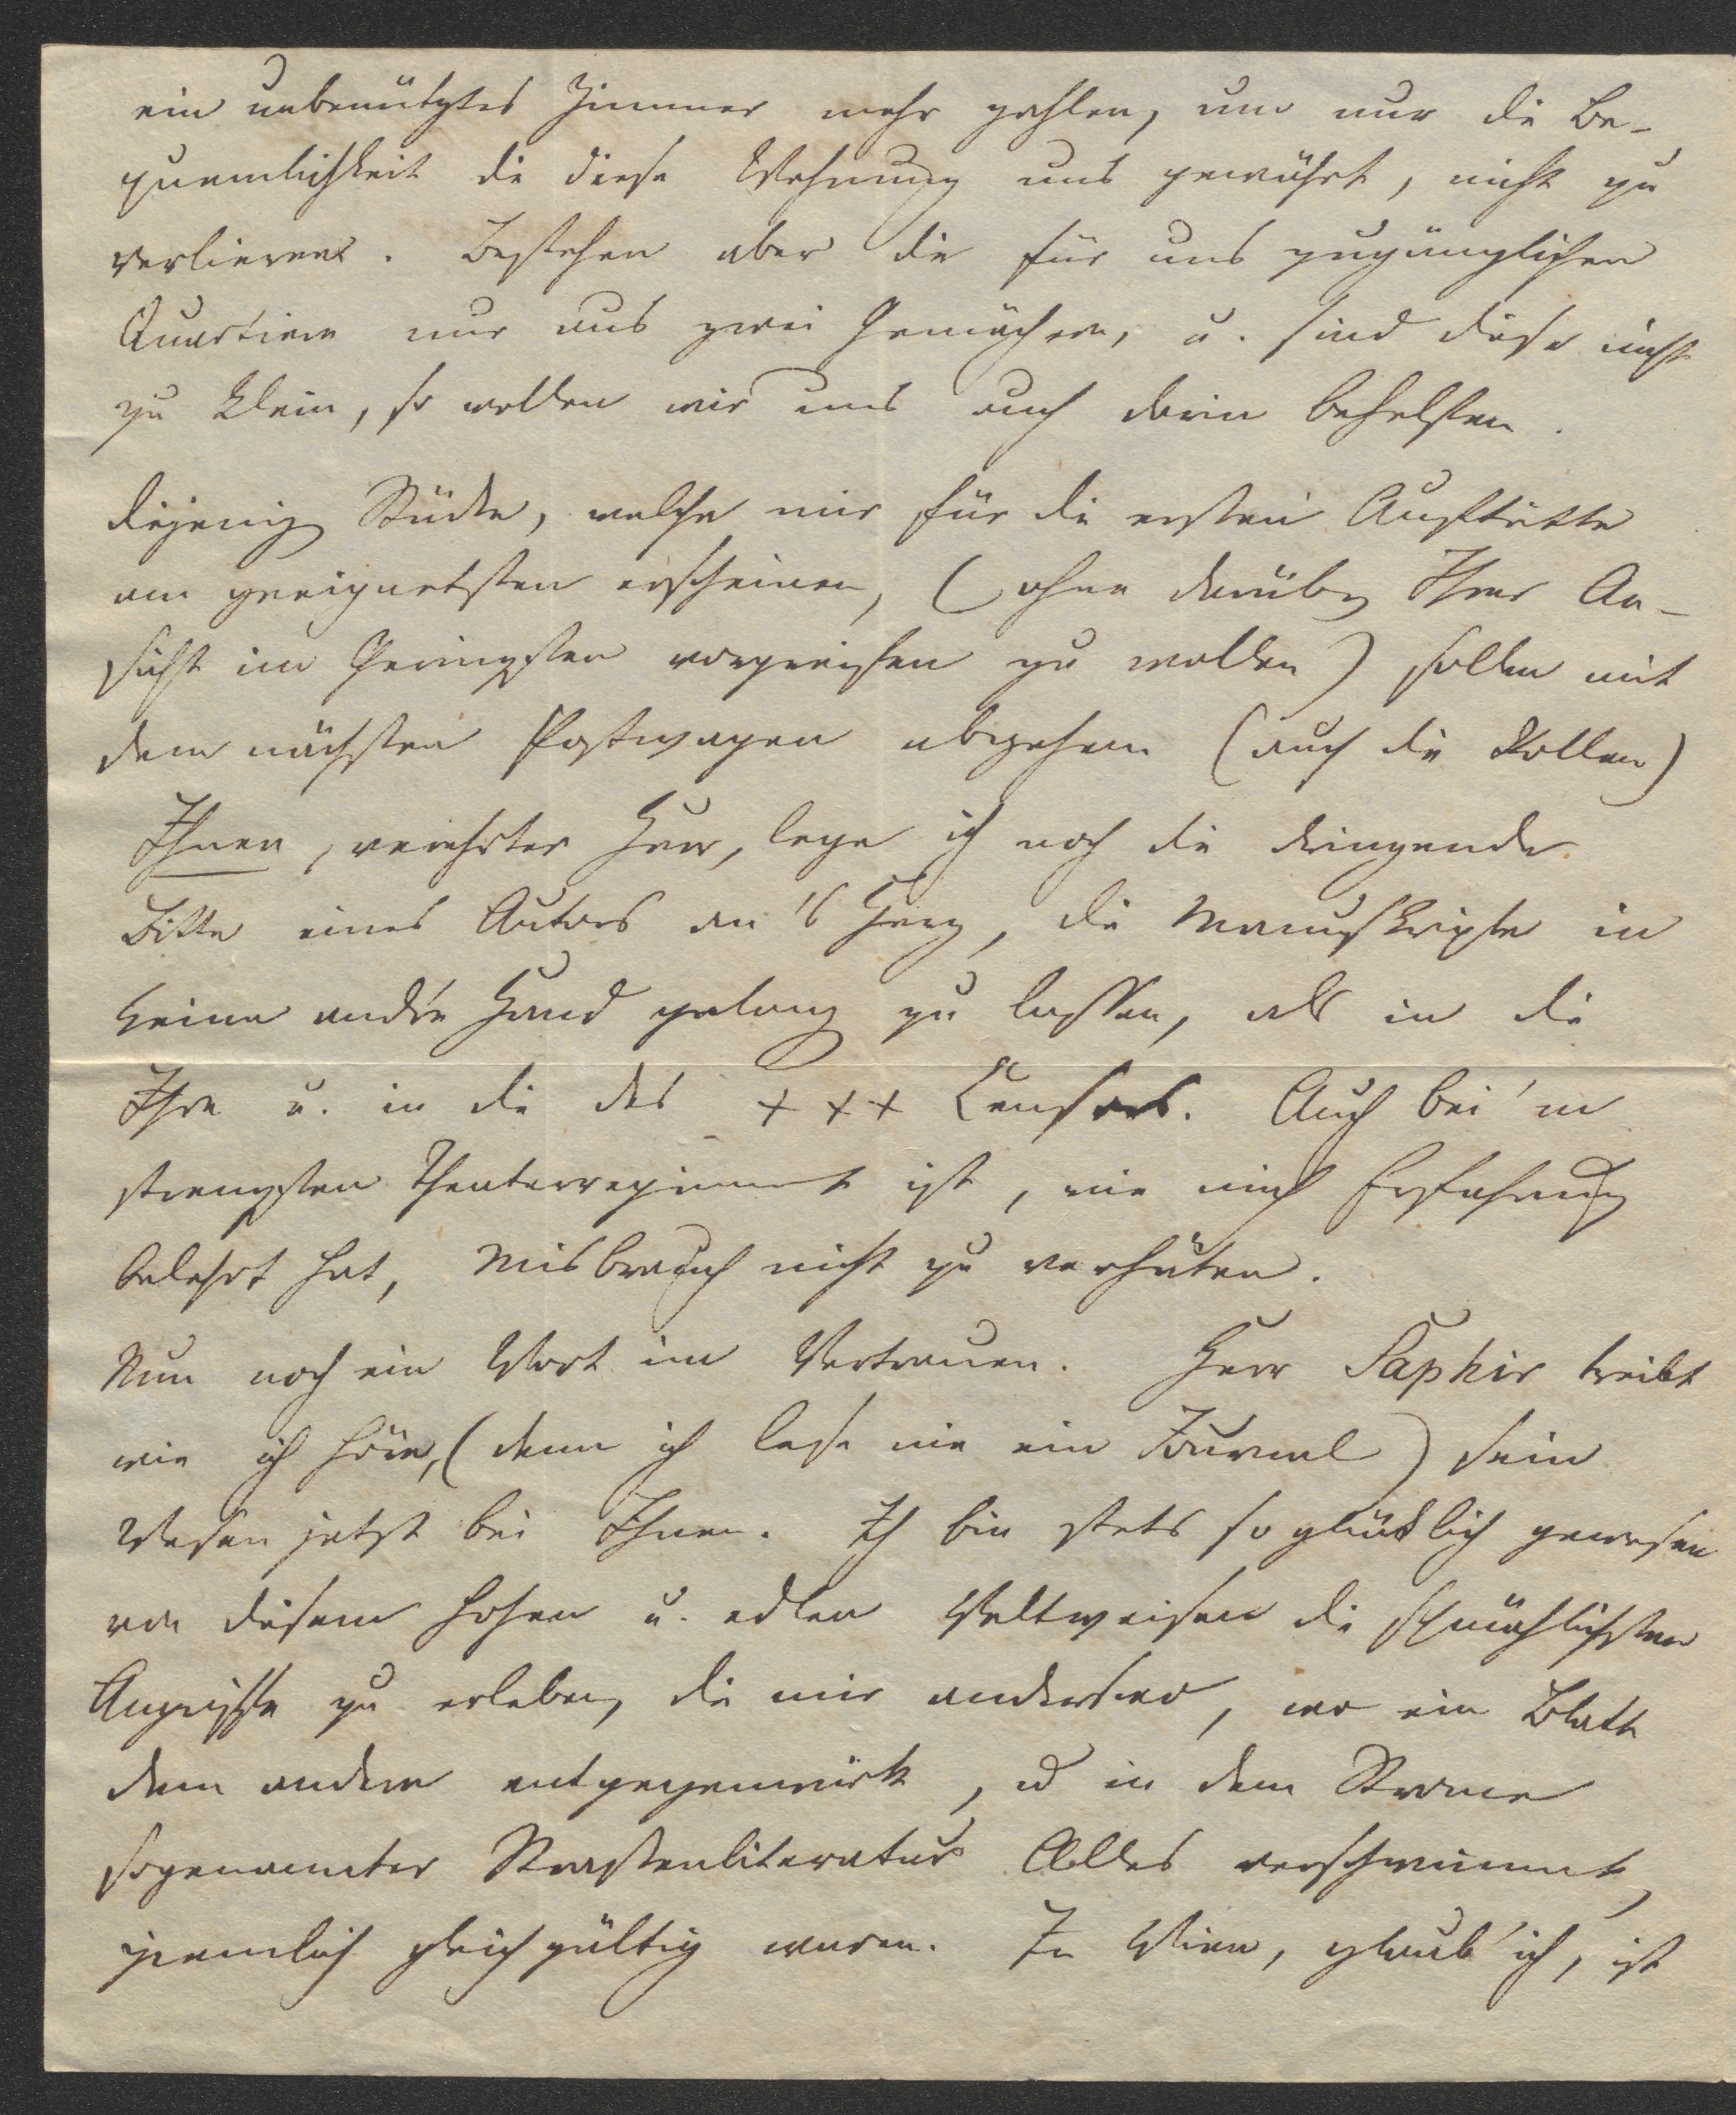 ein unbenütztes Zimmer mehr zahlen, um nur die Be-
quemlichkeit die diese Wohnung uns gewährt, nicht zu
verlieren. Bestehen aber die für uns zugänglichen
Quartiere nur aus zwei Gemächern, u. sind diese nicht
zu klein, so wollen wir uns auch darin behelfen.
Diejenig Stücke, welche mir für die ersten Auftritte
am geeignetsten erscheinen, (ohne darüber Ihrer An-
sicht im Geringsten vorgreifen zu wollen) sollen mit
dem nächsten Postwagen abgehen (auch die Rollen)
Ihnen, verehrter Herr, lege ich noch die dringende
Bitte eines Autors an's Herz, die Manuskripte in
keine andre Hand gelang zu lassen, als in die
Ihre u. in die des +++ Censors. Auch bei'm
strengsten Theaterregiment ist, wie mich Erfahrung
belehrt hat, Misbrauch nicht zu verhüten.
Nun noch ein Wort im Vertrauen. Herr Saphir treibt
wie ich höre, (denn ich lese nie ein Journal) sein
Wesen jetzt bei Ihnen. Ich bin stets so glücklich gewesen
von diesem hohen u. edlen Weltweisen die schmählichsten
Angriffe zu erleben, die mir anderswo, wo ein Blatt
dem andern entgegenwirkt, u in dem Strome
sogenannter Strassenliteratur Alles verschwimmt,
ziemlich gleichgültig waren. In Wien, glaub' ich, ist